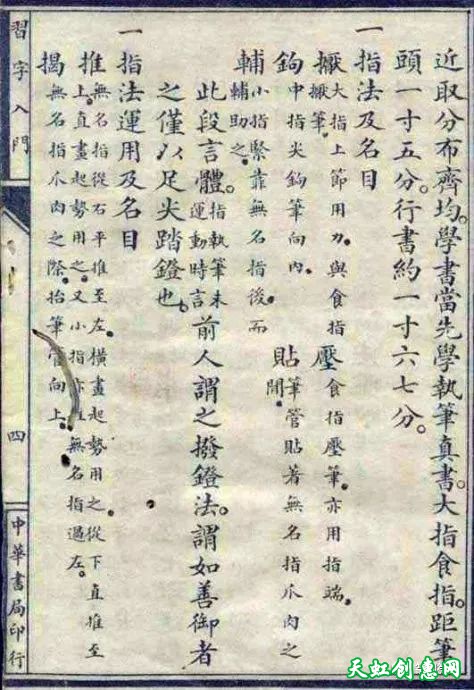 近取分布齊均。學書當先學執筆。真書。大指食指。距筆
頭一寸五分。行書約一寸六七分。
一 指法及名目
擫 大指上節用力。與食指擫筆。 壓 食指壓筆。亦用指端。
鉤 中指尖鉤筆向內。 貼 筆管貼著無名指爪肉之間。
輔 小指緊靠無名指後。而輔助之。
此段言體。指執筆未運動時言 前人謂之撥鐙法。謂如善御者
之僅以足尖踏鐙也。
一 指法運用及名目
推 無名指從右平推至左。橫畫起勢用之。從下直推至上。直畫起勢用之。又小指亦 無名指過左。
揭 無名指爪肉之際。抬筆管向上。
習字入門
四
中華書局印行
天虹创意网